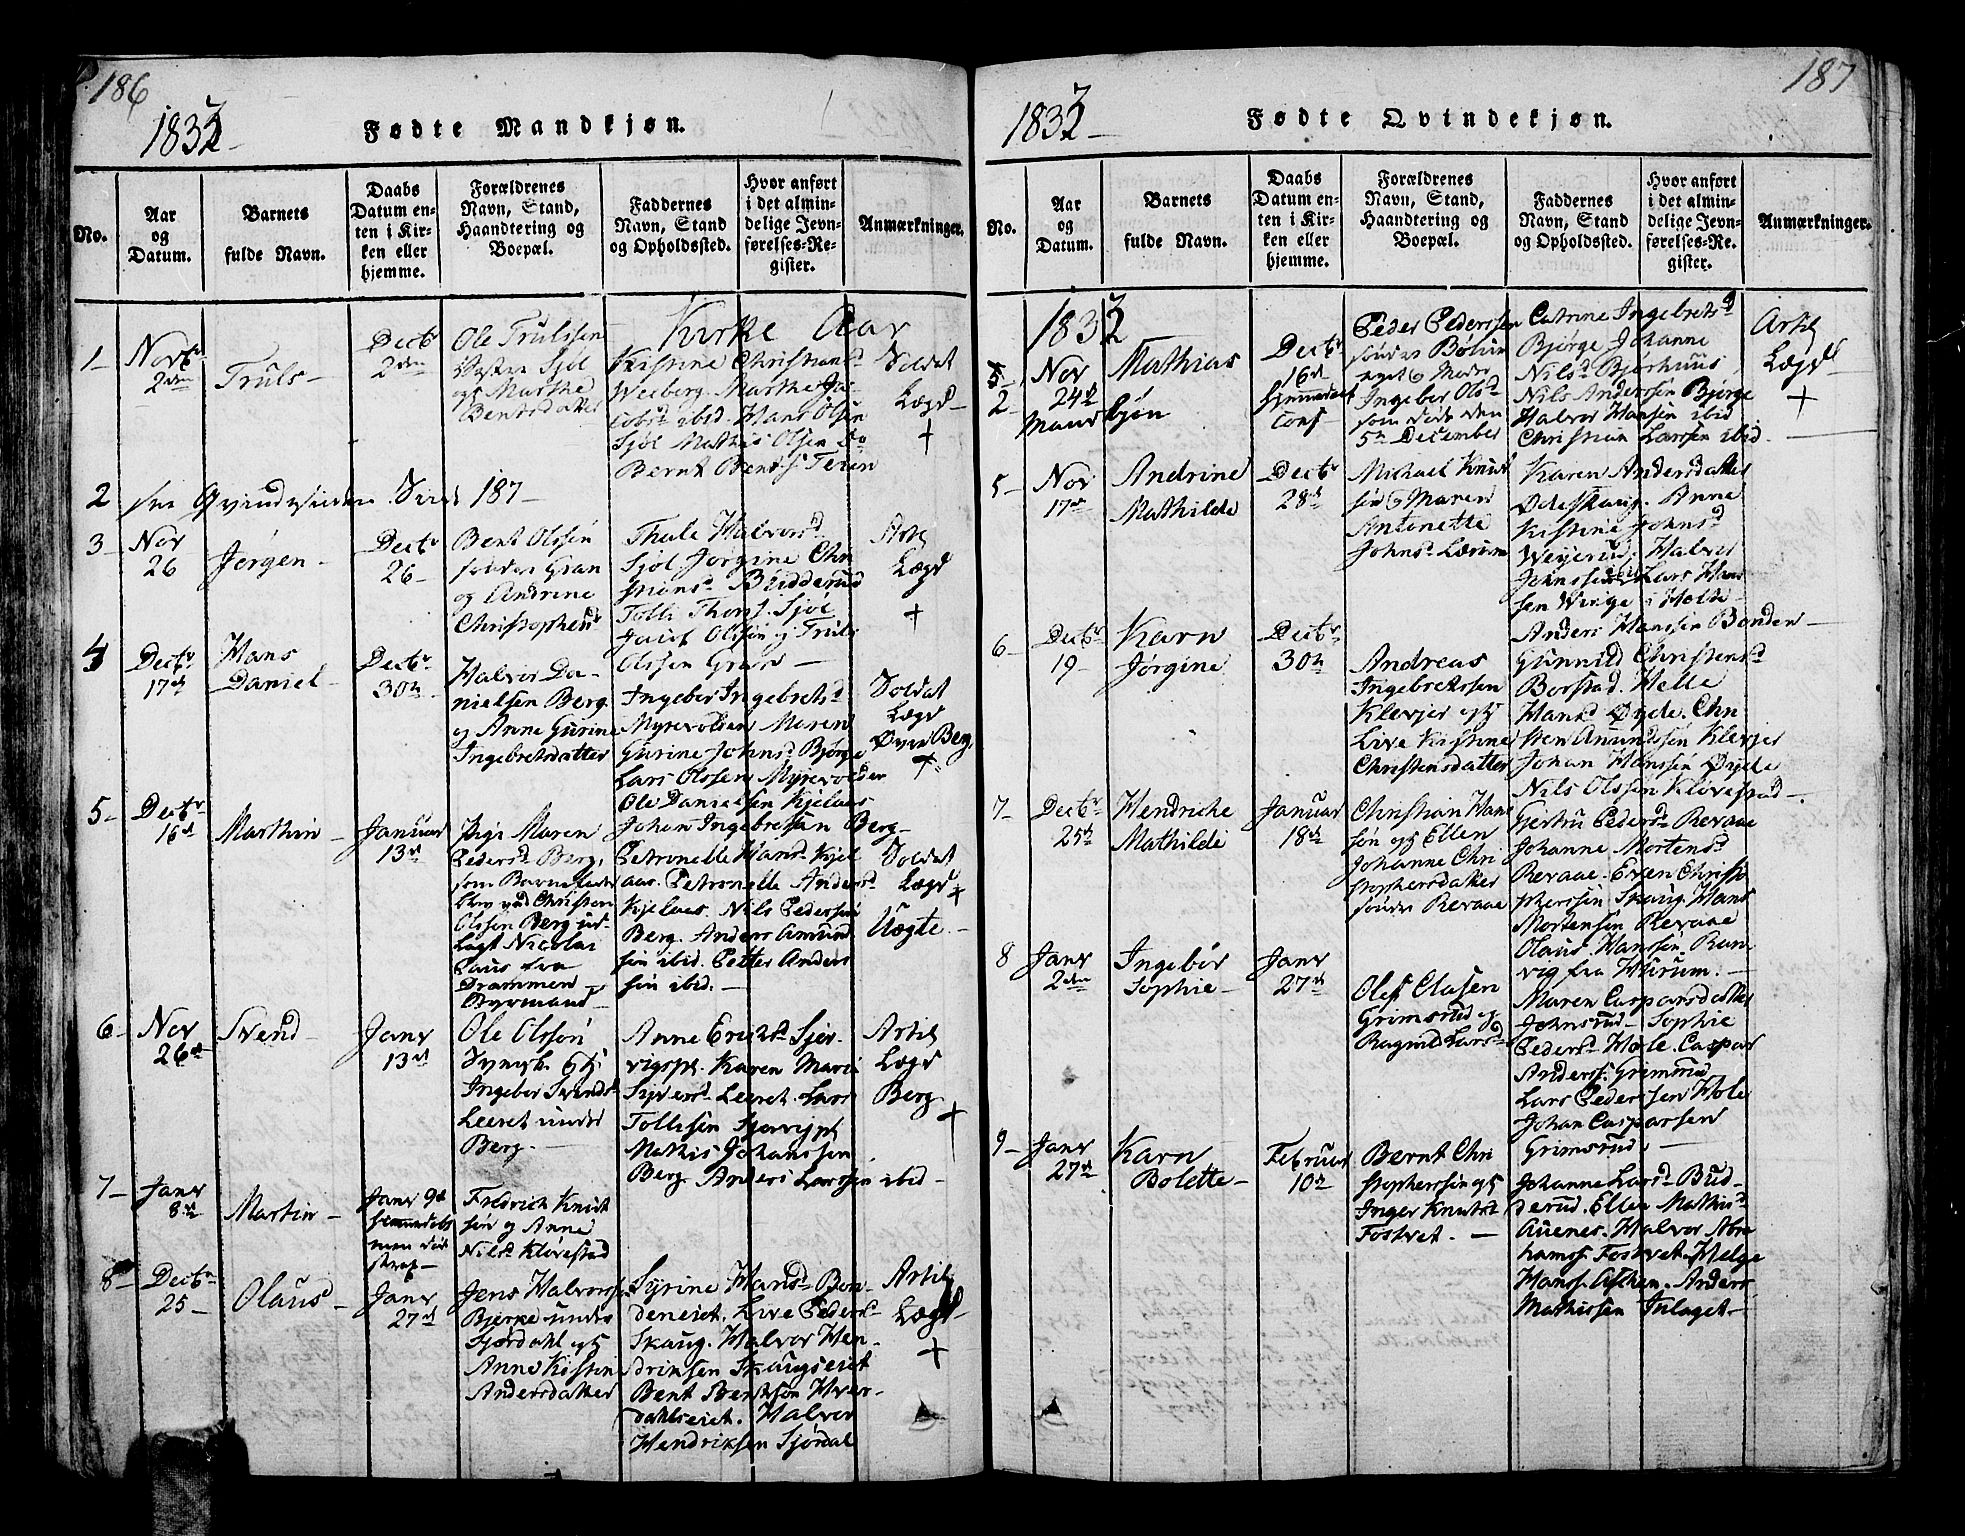 186
1833
Fødte Mandkjøn.
No.
Aar
og
Datum.
Barnets
fulde Navn.
Daabs
Datum en-
ten i Kir-
ken eller
hjemme.
Forældrenes
Navn, Stand,
Haandtering og
Boepæl.
Faddernes
Navn, Stand
og Opholdssted.
Hvor anført
i det almin-
delige Jevn-
førelses-Re-
gister.
Anmærkninger.
Kirke Aar
1-
Novbr
2den
Truls-
Decbr
2den
Ole Trulssen
Sjøl
og Marthe
Bentsdatter
Kristine Christians
Weeberg. Marthe Ja-
cobsd ibid. Hans Olsen
Sjøl Mathis Olsen
Bernt Bents
Soldat
Lægd-
+
2
see Qvindesiden Side 187-
3-
Nov
26
Jørgen-
Decbr
26-
Bent Olssøn
Gran
og Andrine
Christophersd
Thale Halvorsd
Sjøl Jørgine Chri
stians
Tolle Thors. Sjøl
Jacob Olssøn og Truls
Olssen Gran-
Lægd
+
4
Decbr
17de
Hans
Daniel-
Decbr
30te
Halvor Da-
nielsen Berg
og Anne Gurine
Ingebretsdatter
Ingebor Ingebretsd
Myrevolden Maren
Gurine Johnsd Bjørge
Lars Olssen Myrevolden
Ole Danielsen Kjelaas
Johan Ingebretsen Berg-
Soldat
Lægd
Øvre Berg,
+
5-
Decbr
16de
Marthin-
Januar
13de
Pige Maren
Pedersd Berg,
som Barnefader
blev ved Christen
Olssøn Berg ud-
lagt Nicolai
Paus fra
Drammen
Styrmand-
Petronelle Hansd Kjel
aas. Petronelle Anders
Kjelaas. Nils Pedersen
Berg. Anders Amund
sen ibid. Petter Anders
søn ibid.-
Soldat
Lægd
+
Uægte.-
6-
Nov
26de
Svend-
Janr
13de
Ole Olssøn
Ingebor Svends
Leeret under
Berg-
Anne Erichsd
Karen Mari
Syversd Leeret. Lars
Tollesen
Mathis Johanssen
Berg. Anders Larssen ibid-
Artil
Lægd
Berg
+
7-
Janr
8de
Martin-
Janr 9de
hjemmedøbt
men død
strax-
Fredrich Knut
søn og Anne
Nilsd Kløvestad
8-
Decbr
25-
Olaus-
Janr
27de
Jens Halvors
Bjerke under
Fjørdahl og
Anne Kistin
Andersdatter
Syrine Hansd Bon-
deneiet. Live Pedersd
Skaug. Halvor Hen-
driksen Skaugseiet
Bent Bentsøn Hver-
dahlseiet. Halvor
Hendriksen Sjørdal
Artil
Lægd-
+
187
1833
Fødte Qvindekjøn.
No.
Aar
og
Datum.
Barnets
fulde Navn.
Daabs
Datum en-
ten i Kir-
ken eller
hjemme.
Forældrenes
Navn, Stand,
Haandtering og
Boepæl.
Faddernes
Navn, Stand
og Opholdssted.
Hvor anført
i det almin-
delige Jevn-
førelses-Re-
gister.
Anmærkninger.
1833
2-
Nov
24de
Mathias
Mandkjøn
Decbr
16de
hjemmedøbt
conf
Peder Pederssen
Ingebor Olsd
som døde den
5te December
Catrine Ingebretsd
Bjørge Johanne
Nilsd Bjørhuus
Nils Anderssen Bjørge
Halvor Hansen ibid
Christian Larsen ibid-
Artil
Lægd-
+
5-
Nov
17de
Andrine
Mathilde
Decbr
28de
Michael Knut
søn og Maren
Antonette
Johnsd Lærum
Karen Andersdatter
Ødeskaug. Anne
Kistine Johnsd
Halvor
Johnssen Lars Hans
sen Holte-
Anders Hanssen Bonden-
6-
Decbr
19-
Karn
Jørgine
Decbr
30te
Andreas
Ingebretssen
Klevjer og
Live Kistine
Christensdatter
Gunnild Christensd
Borstad. Helle
Hansd Øyde. Chri
sten Amundsen Klevjer
Johan Hanssen Øyde
Nils Olssen Kløvestad-.
7-
Decbr
25de
Hendriche
Mathilde
Januar
18de
Christian Han
søn og Ellen
Johanne Chri
stophersdatter
Revaae
Gjertru Pedersd Revaae
Johanne Mortensd
Revaae. Even Christo
phersen Skaug. Hans
Mortensen Revaae
Olaus Hanssen. Run
vig fra Hurum.-
8
Janr
2den
Ingebor
Sophie-
Janr
27de
Ole Clasen
Grimsrud og
Ragnild Larsd
Maren Caspersdatter
Johnsrud- Sophie
Pedersd Hole. Caspar
Anderss. Grimsrud
Lars Pederssen Hole
Johan Casparsen
Grimsrud-
9-
Janr
27de
Karn
Bolette-
Februar
10de
Bernt Chri
stopherssøn og
Inger Knutsd
Fostvet.-
Johanne Larsd Bud-
derud. Ellen Mathisd
Auenes. Halvor Abra
hams. Fostvet. Helge
Hans. Aschen. Anders
Mathissen Inlaget-